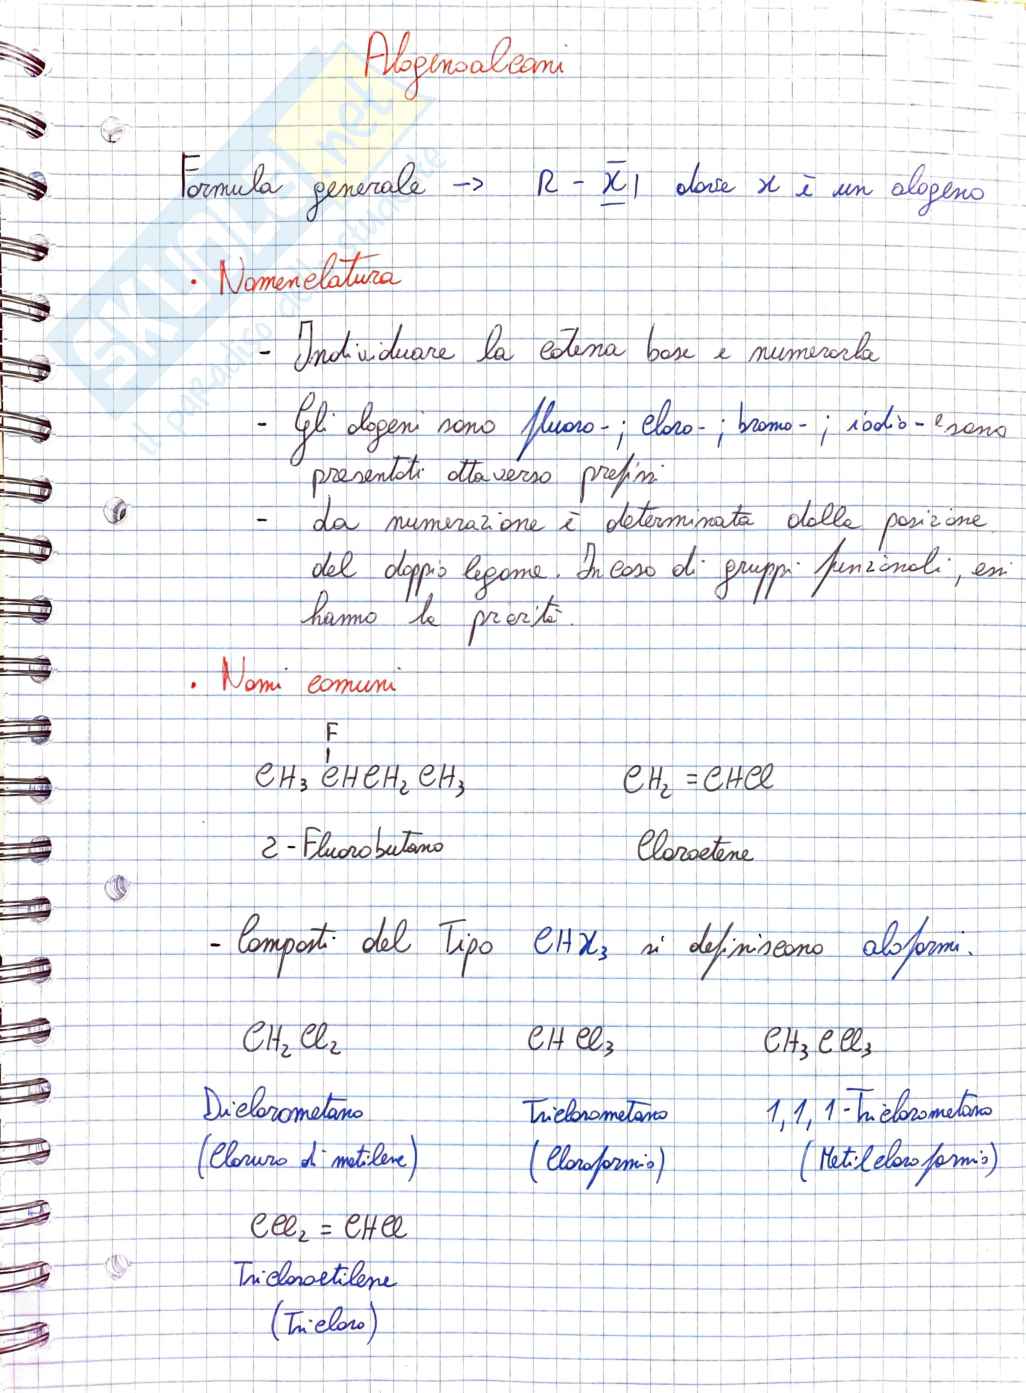 Alogenoalcani
Formula generale -> R - X dove x è un alogeno
• Nomenclatura
- Individuare la catena base e numerarla
- Gli alogeni sono fluoro-; cloro-; bromo-; iodio- e sono
presentati attraverso prefissi
- La numerazione è determinata dalla posizione
del doppio legame. In caso di gruppi funzionali, essi
hanno la priorità.
• Nomi comuni
F
CH3 CHCH2 CH3 CH2 = CHCl
2-Fluorobutano Cloroetene
- Composti del Tipo CHX3 si definiscono aloformi.
CH2Cl2 CHCl3 CH3CCl3
Diclorometano Triclorometano 1,1,1-Triclorometano
(Cloruro di metilene) (Cloroformio) (Metilcloroformio)
CCl2 = CHCl
Tricloroetilene
(Tricloro)
SKUOLA.net
il paradiso dello studente